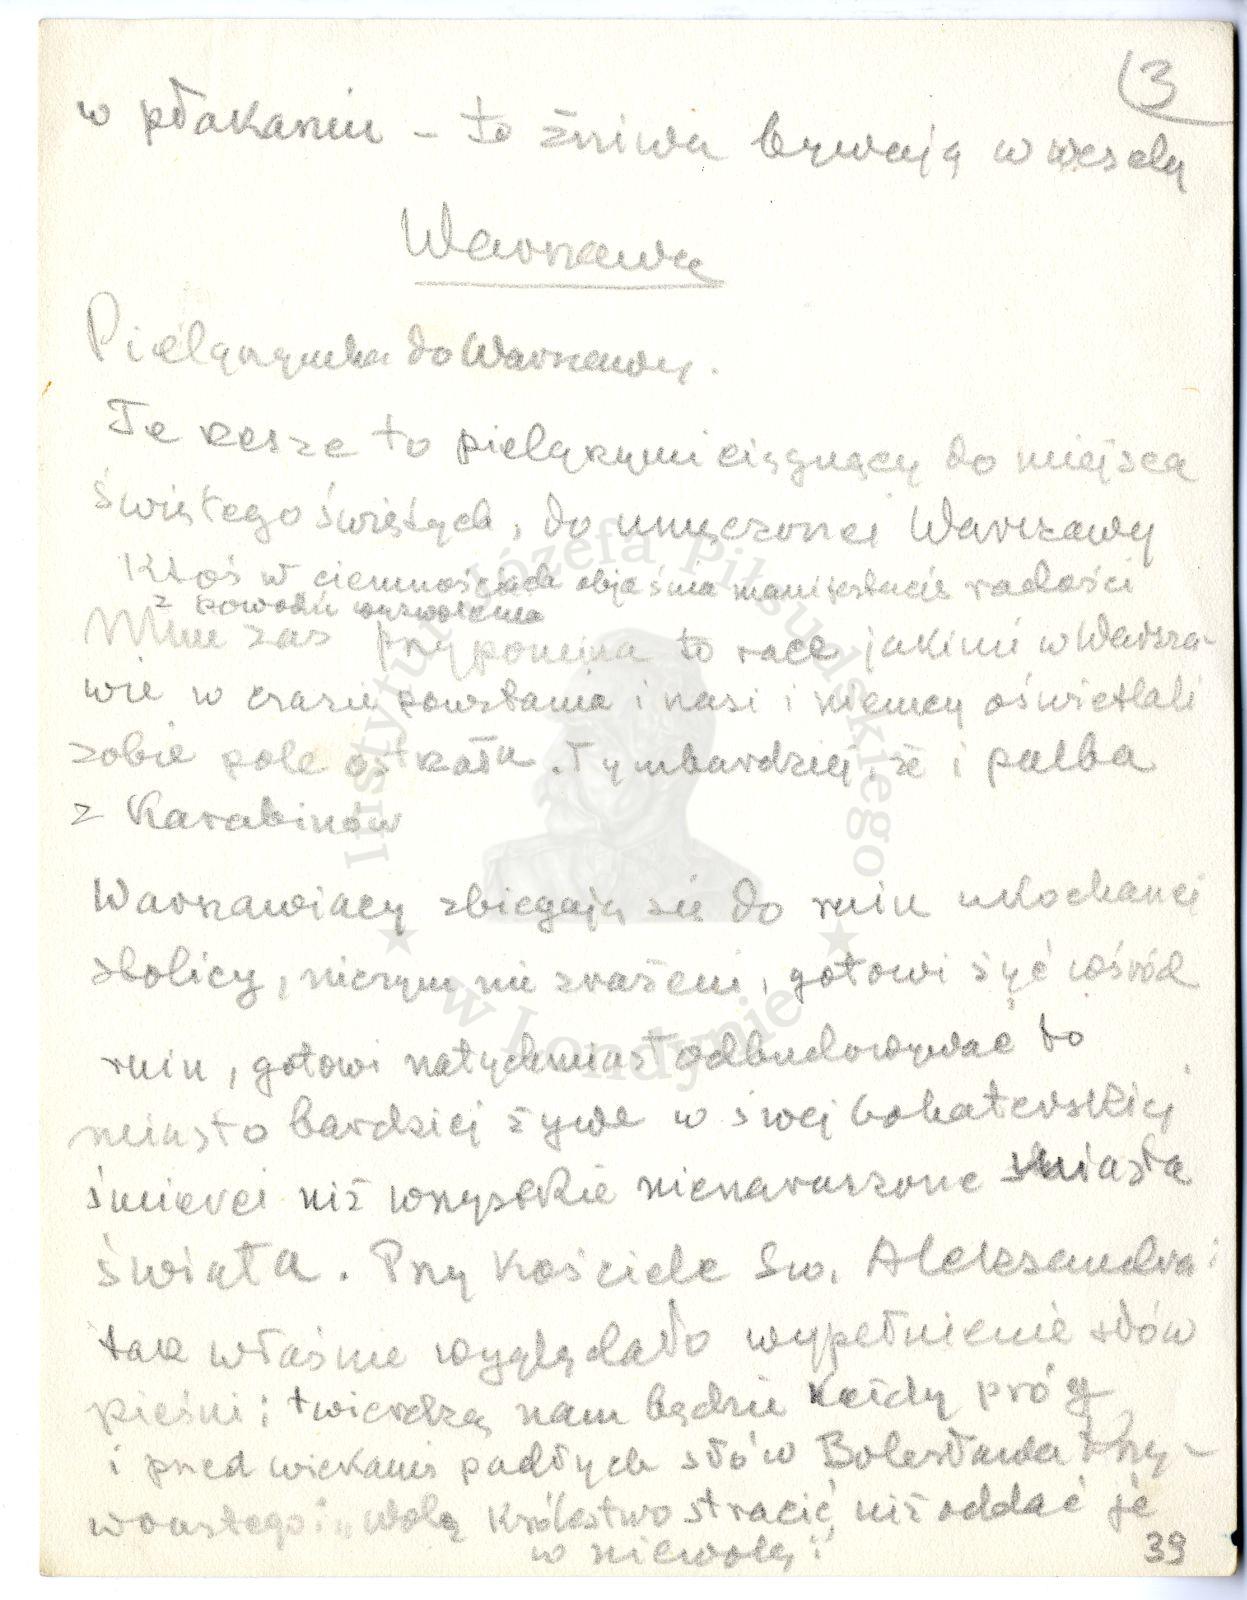 3
w płakaniu – to żniwa bywają w wesely
Warszawa
Pielgrzymka do Warszawy.
Te rzesze to pielgrzymi ciągnący do miejsca
świętego świętych, do umęczonej Warszawy
Ktoś w ciemnościach objaśnia manifestacje radości
z powodu wyzwolenia
Mnie zaś przypomina to race jakimi w Warsza-
wie w czasie powstania i nasi i niemcy oświetlali
sobie pole ostrzału. Tymbardziej, że i palba
z karabinów
Warszawiacy zbiegają się do ruin ukochanej
stolicy, niczym nie zrażeni, gotowi żyć wśród
ruin, gotowi natychmiast odbudowywać to
miasto bardziej żywe w swej bohaterskiej
śmierci niż wszystkie nienaruszone miasta
świata. Przy kościele Św. Aleksandra
tak właśnie wyglądało wypełnienie słów
pieśni: twierdzą nam będzie każdy próg
i przed wiekami padłych słów Bolesława Krzy-
woustego: „wolę Królestwo stracić niż oddać je
w niewolę"
39
Instytut Józefa Piłsudskiego
w Londynie